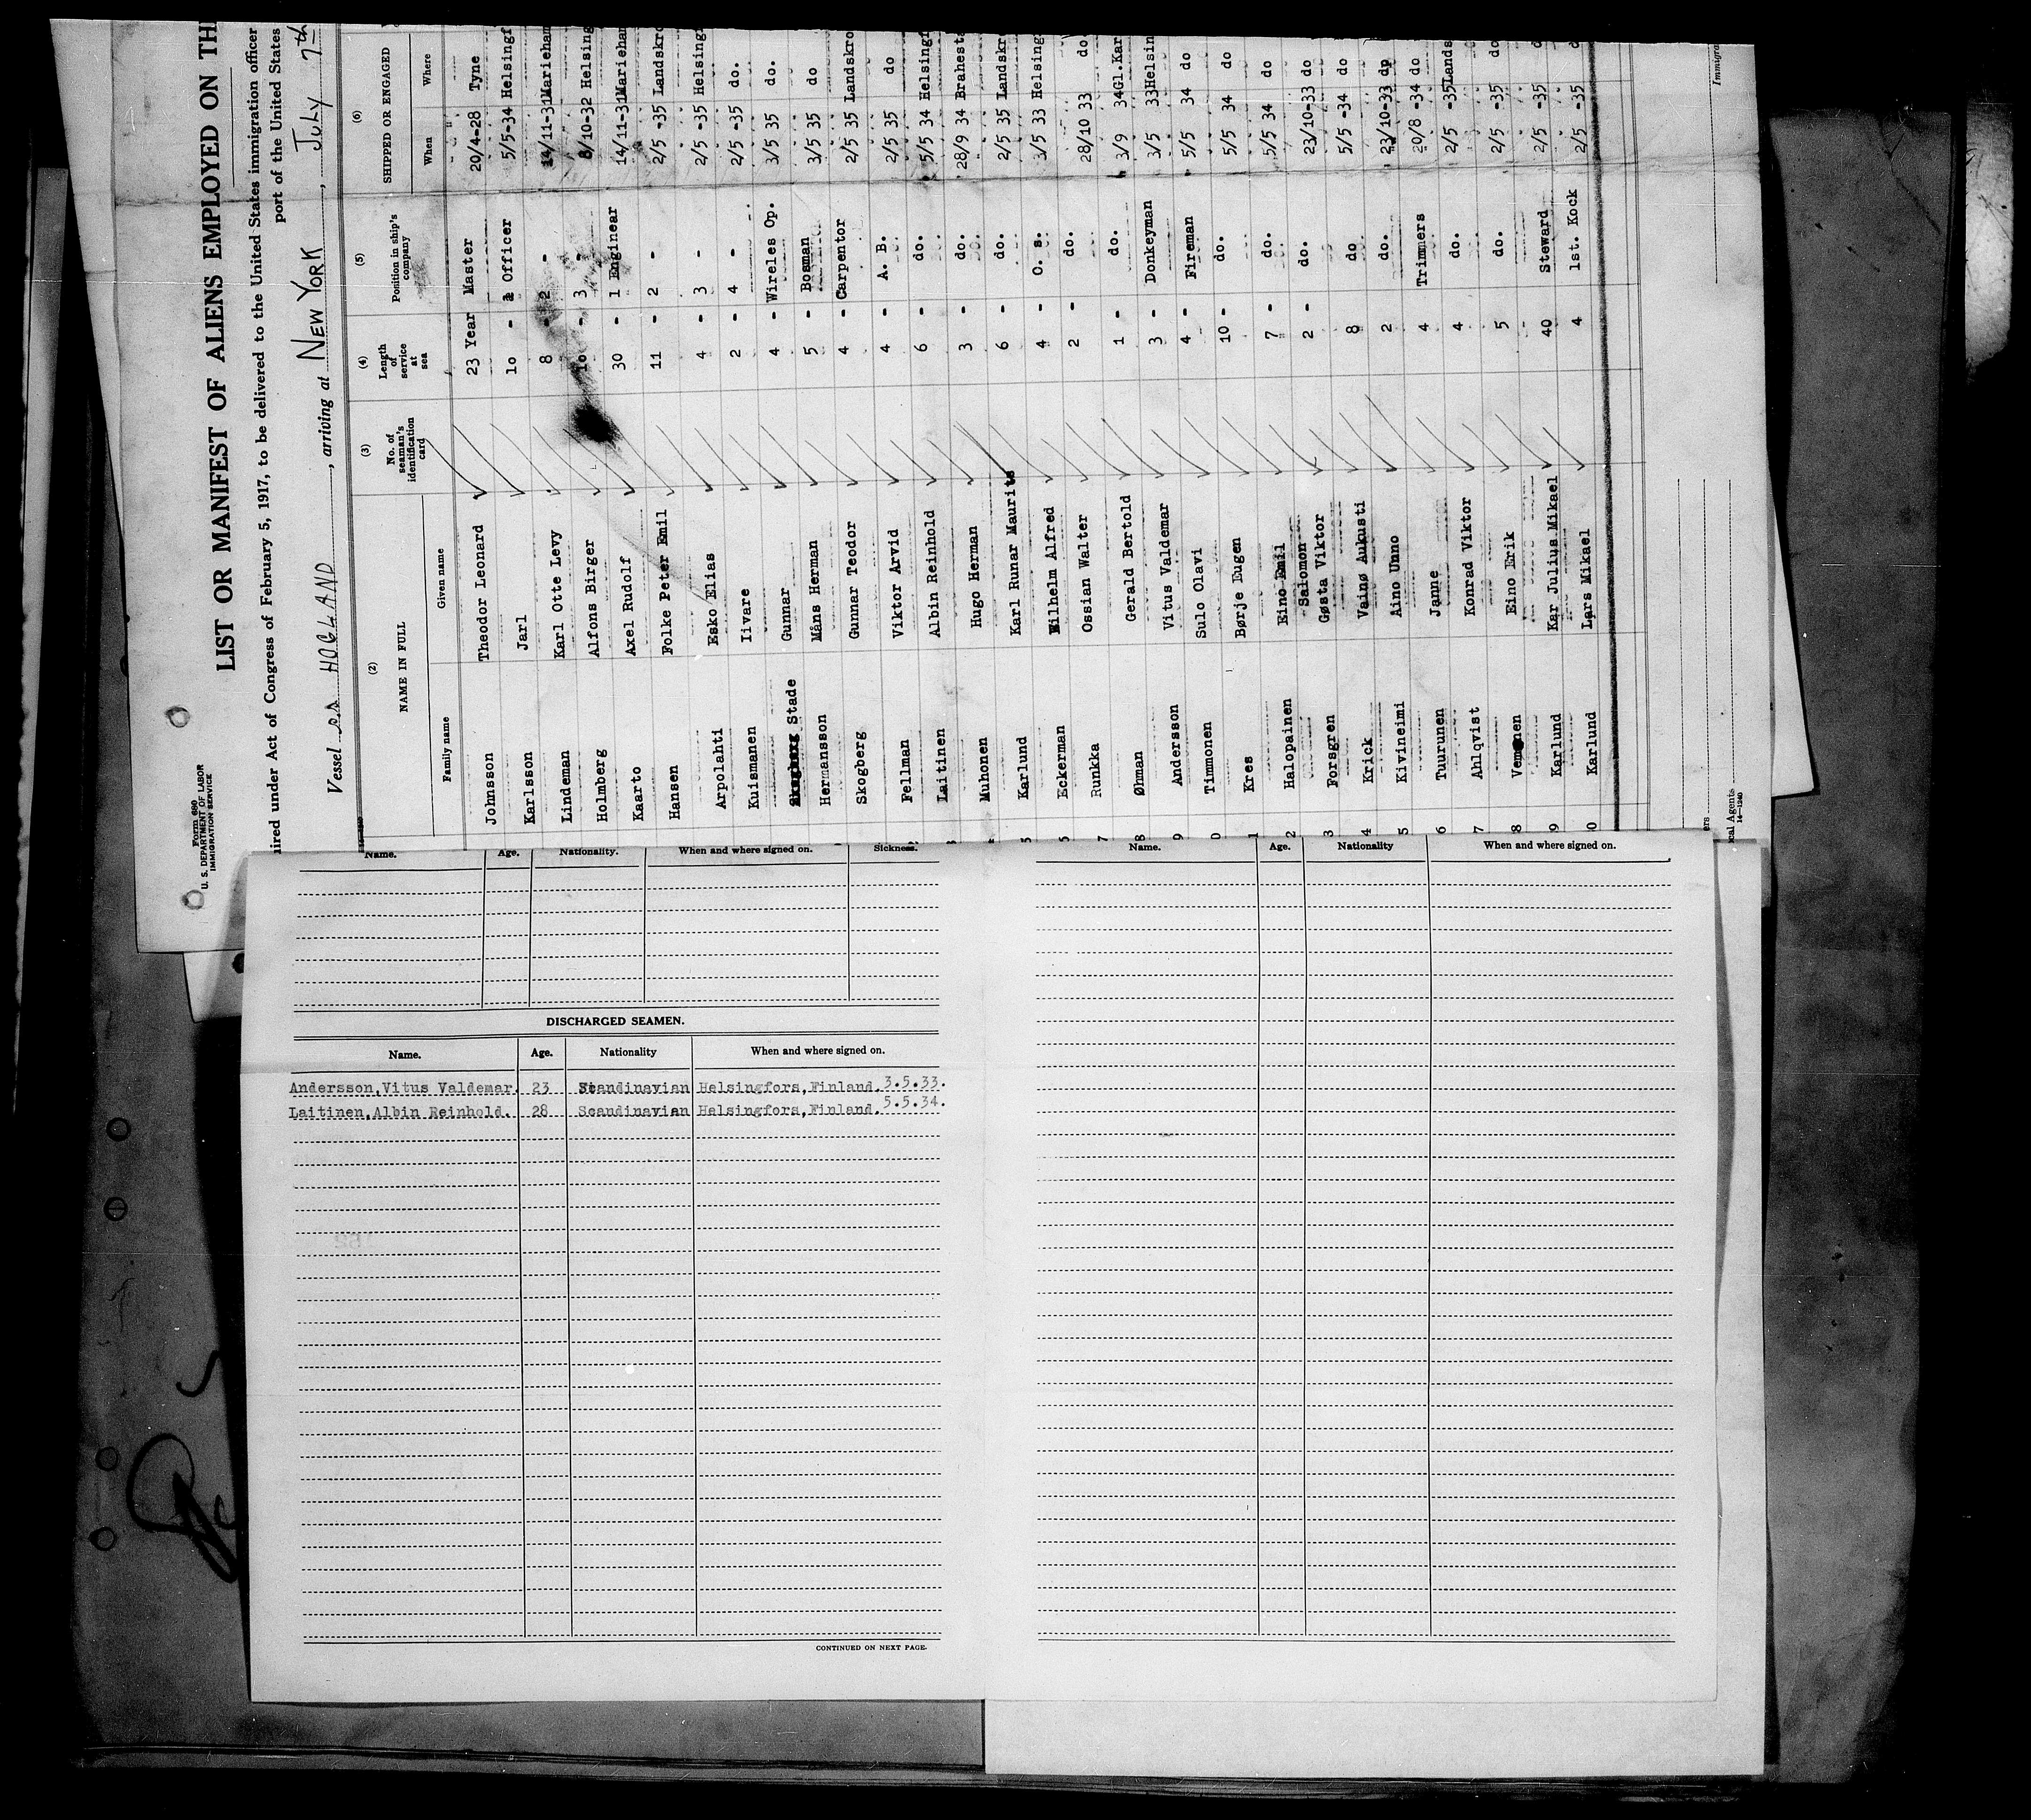 Form 680
U. S. DEPARTMENT OF LABOR
IMMIGRATION SERVICE
LIST OR MANIFEST OF ALIENS EMPLOYED ON TH
uired under Act of Congress of February 5, 1917, to be delivered to the United States immigration officer
port of the United States
Vessel s.s HOGLAND, arriving at NEW YORK, JULY 7th
(2) (3) (4) (5) (6)
NAME IN FULL No. of seaman's identification card Length of service at sea Position in ship's company SHIPPED OR ENGAGED
Family name Given name When Where
Johnsson Theodor Leonard 23 Year Master 20/4-28 Tyne
Karlsson Jarl 10 - 1 Officer 5/5-34 Helsingf
Lindeman Karl Otte Levy 8 - 2 - 14/11-31 Marieham
Holmberg Alfons Birger 10 - 3 - 8/10-32 Helsing
Kaarto Axel Rudolf 30 - 1 Enginear 14/11-31 Mariehan
Hansen Folke Peter Emil 11 - 2 - 2/5 -35 Landskro
Arpolahti Esko Elias 4 - 3 - 2/5 -35 Helsing
Kuismanen Iivare 2 - 4 - 2/5 -35 do.
Stade Gunnar 4 - Wireles Op. 3/5 35 do.
Hermansson Måns Herman 5 - Bosman 3/5 35 do
Skogberg Gunnar Teodor 4 - Carpentor 2/5 35 Landskro
Fellman Viktor Arvid 4 - A. B. 2/5 35 do
Laitinen Albin Reinhold 6 - do. 5/5 34 Helsingf
Muhonen Hugo Herman 3 - do. 28/9 34 Brahesta
5 Karlund Karl Runar Maurits 6 - do. 2/5 35 Landskr
5 Eckerman Wilhelm Alfred 4 - O. s. 3/5 33 Helsing
7 Runkka Ossian Walter 2 - do. 28/10 33 do.
8 Øhman Gerald Bertold 1 - do. 3/9 34 Gl.Kar
9 Andersson Vitus Valdemar 3 - Donkeyman 3/5 33 Helsin
0 Timmonen Sulo Olavi 4 - Fireman 5/5 34 do
1 Kres Børje Eugen 10 - do. 5/5 34 do
2 Halopainen Eino Emil Salomon 7 - do. 5/5 34 do
3 Forsgren Gøsta Viktor 2 - do. 23/10-33 do
4 Krick Vainø Aukusti 8 do 5/5 -34 do
5 Kivineimi Aino Unno 2 do. 23/10-33 do
6 Tuurunen Janne 4 Trimmers 20/8 -34 do
7 Ahlqvist Konrad Viktor 4 do. 2/5 -35 Lands
8 Eino Erik 5 do. 2/5 -35 do
9 Karlund Kar Julius Mikael 40 Steward 2/5 -35 d
0 Karlund Lars Mikael 4 1st. Kock 2/5 -35 d
ers
cal Agents
14-1240
Immigra
Name. Age. Nationality. When and where signed on. Sickness.
DISCHARGED SEAMEN.
Name. Age. Nationality When and where signed on.
Andersson,Vitus Valdemar. 23 Scandinavian Helsingfors,Finland. 3.5.33.
Laitinen,Albin Reinhold. 28 Scandinavian Helsingfors,Finland. 5.5.34.
CONTINUED ON NEXT PAGE.
Name. Age. Nationality When and where signed on.